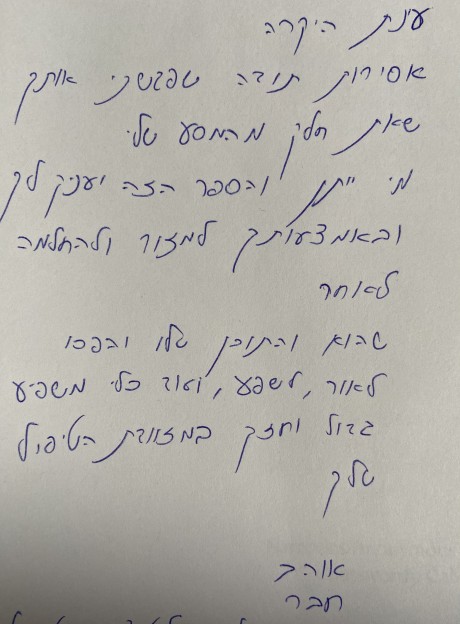 עינת היקרה
אסירות תודה שפגשתי אותך
שאת חלק מהמסע שלי
מי ייתן והספר הזה יעניק לך
ובאמצעותך למזור ולהחלמה
לאחר
שהוא והתוכן שלו והפכו
לאור, לשפע, ועוד כלי משפיע
גדול וחזק במזוודת הטיפול
שלך
אוהב
חבר